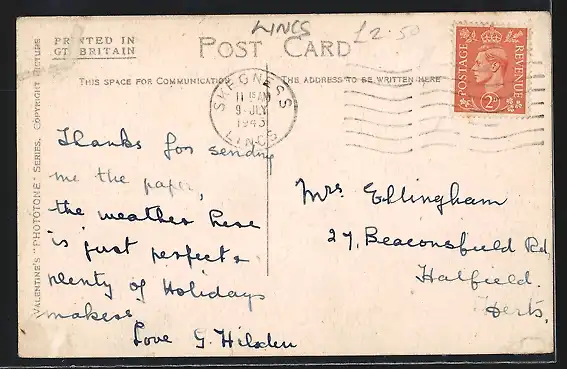 LINCS
£2.50
PRINTED IN
GT BRITAIN
POST CARD
THIS SPACE FOR COMMUNICATION
THE ADDRESS TO BE WRITTEN HERE
POSTAGE
REVENUE
2D
SKEGNESS
11 15 AM
9 JLY
1943
LINCS
VALENTINE'S "PHOTOTONE" SERIES. COPYRIGHT PICTURE
Thanks for sending
me the paper,
the weather here
is just perfect &
plenty of Holidays
makers
Love G. Hilsden
Mrs Ellingham
27, Beaconsfield Rd,
Hatfield.
Herts.